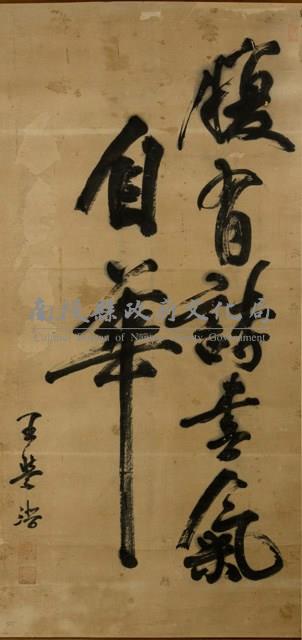 腹有詩書氣
自華
王學浩
南投縣政府文化局
Cultural Bureau of Nantou County Government